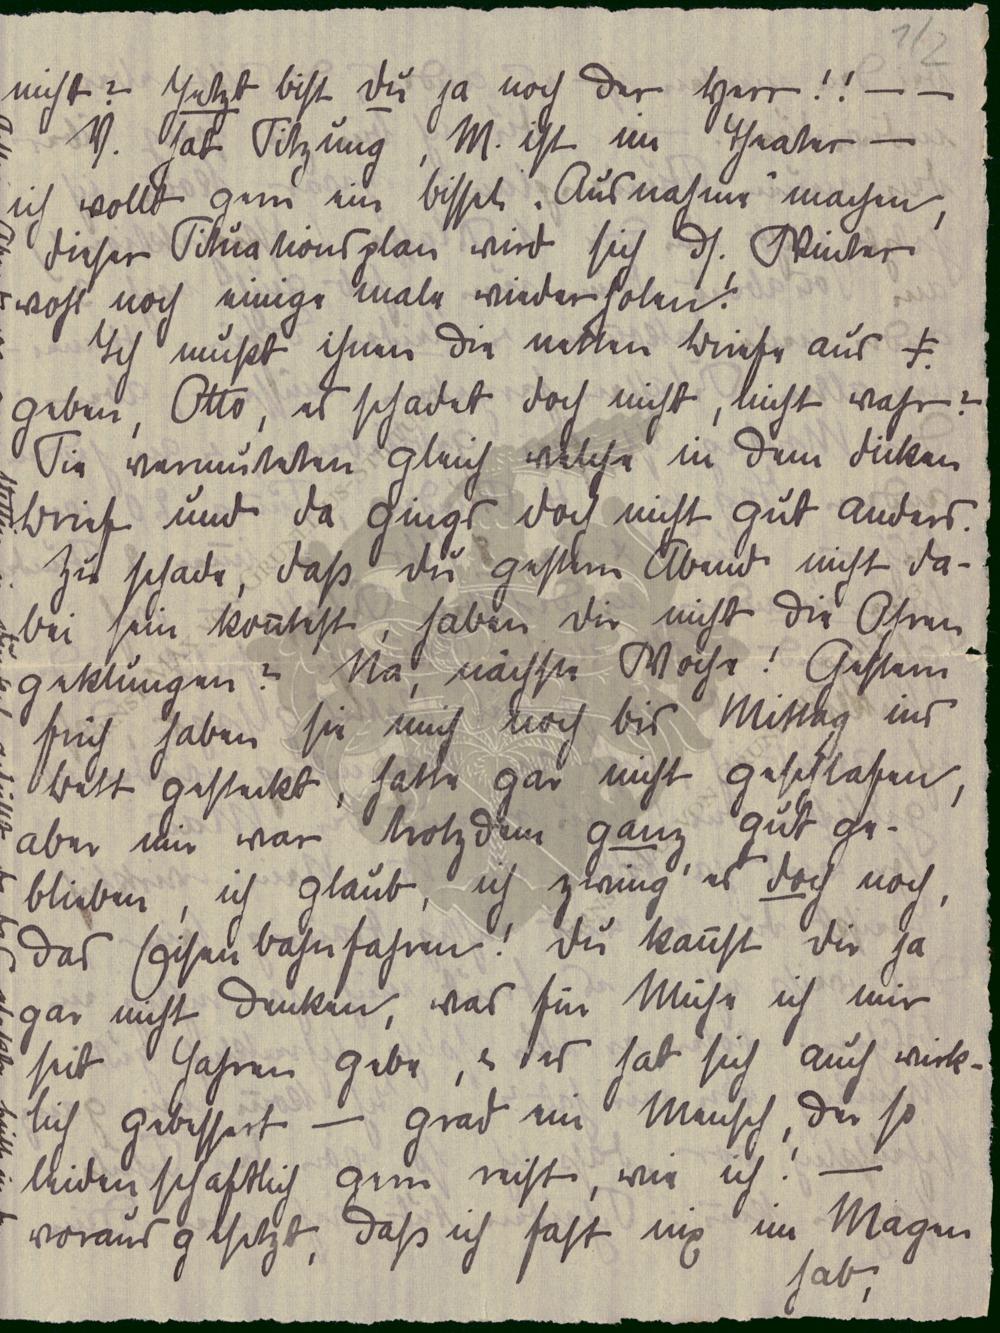 1/2
nicht? Jetzt bist du ja noch der Herr!! — —
V. hat Sitzung, M. ist im Theater —
ich wollt gern ein bissel „Ausnahme" machen,
dieser Situationsplan wird sich ds. Winter
wohl noch einige male wiederholen!
Ich mußt ihnen die netten Briefe aus F.
geben, Otto, es schadet doch nicht, nicht wahr?
Sie vermuteten gleich welche in dem dicken
Brief und da gings doch nicht gut anders.
Zu schade, daß du gestern Abend nicht da-
bei sein kon̄test, haben dir nicht die Ohren
geklungen? Na, nächste Woche! Gestern
früh haben sie mich noch bis Mittag ins
Bett gesteckt, hatte gar nicht geschlafen,
aber mir war trotzdem ganz gut ge-
blieben, ich glaub, ich zwing' es doch noch,
das Eisenbahnfahren! Du kan̄st dir ja
gar nicht denken, was für Mühe ich mir
seit Jahren gebe, u es hat sich auch wirk-
lich gebessert — grad ein Mensch, der so
leidenschaftlich gern reist, wie ich! —
vorausgesetzt, daß ich fast nix im Magen
hab,